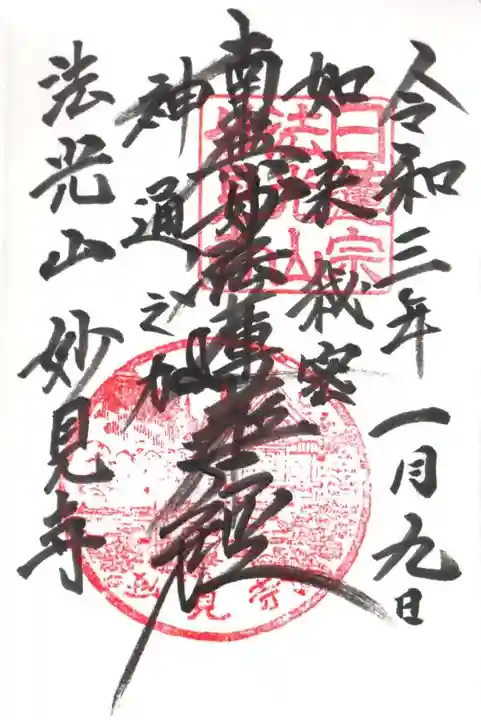 令和三年 一月九日
如来秘密
南無妙法蓮華経
神通之力
法光山 妙見寺
日蓮宗
法光山
妙見寺